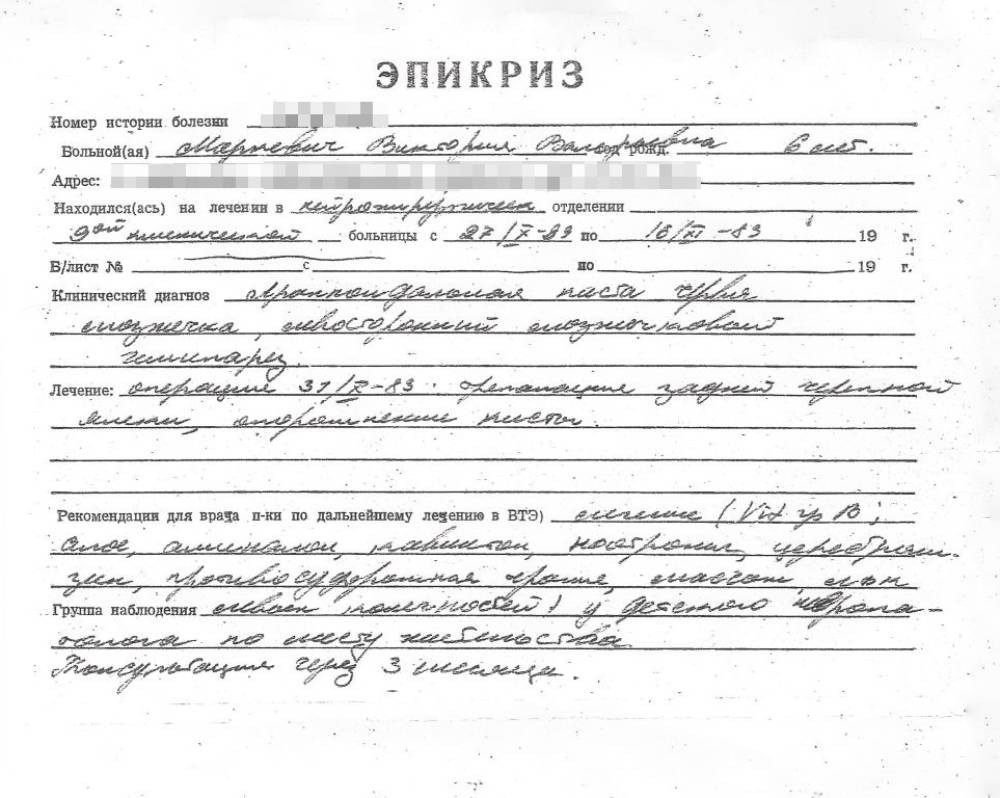 ЭПИКРИЗ
Номер истории болезни
Больной(ая) Виктория рожд. 6 лет.
Адрес:
Находился(ась) на лечении в нейрохирургическ отделении
9ой клинической больницы с 27/X-83 по 16/XI-83 19 г.
Б/лист № с по 19 г.
Клинический диагноз Арахноидальная киста червя
мозжечка, левосторонний мозжечковый
гемипарез.
Лечение: операция 31/X-83: трепанация задней черепной
ямки, опорожнение кисты.
Рекомендации для врача п-ки по дальнейшему лечению в ВТЭ) лечение (Vit гр В;
алое, аминалон, кавинтон, ноотропил, церебролизин, противосудорожная массаж,
Группа наблюдения левых конечностей) у детского невропатолога по месту жительства
Консультация через 3 месяца.